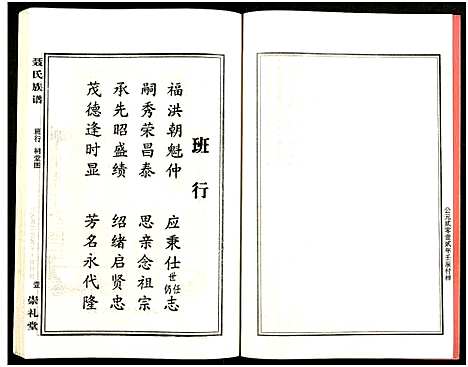 公元贰零壹贰年壬辰付梓
班行
福洪朝魁仲 应秉仕世仍任志
嗣秀荣昌泰 思亲念祖宗
承先昭盛绩 绍绪启贤忠
茂德逢时显 芳名永代隆
聂氏族谱
班行 祠堂图
壹
崇礼堂